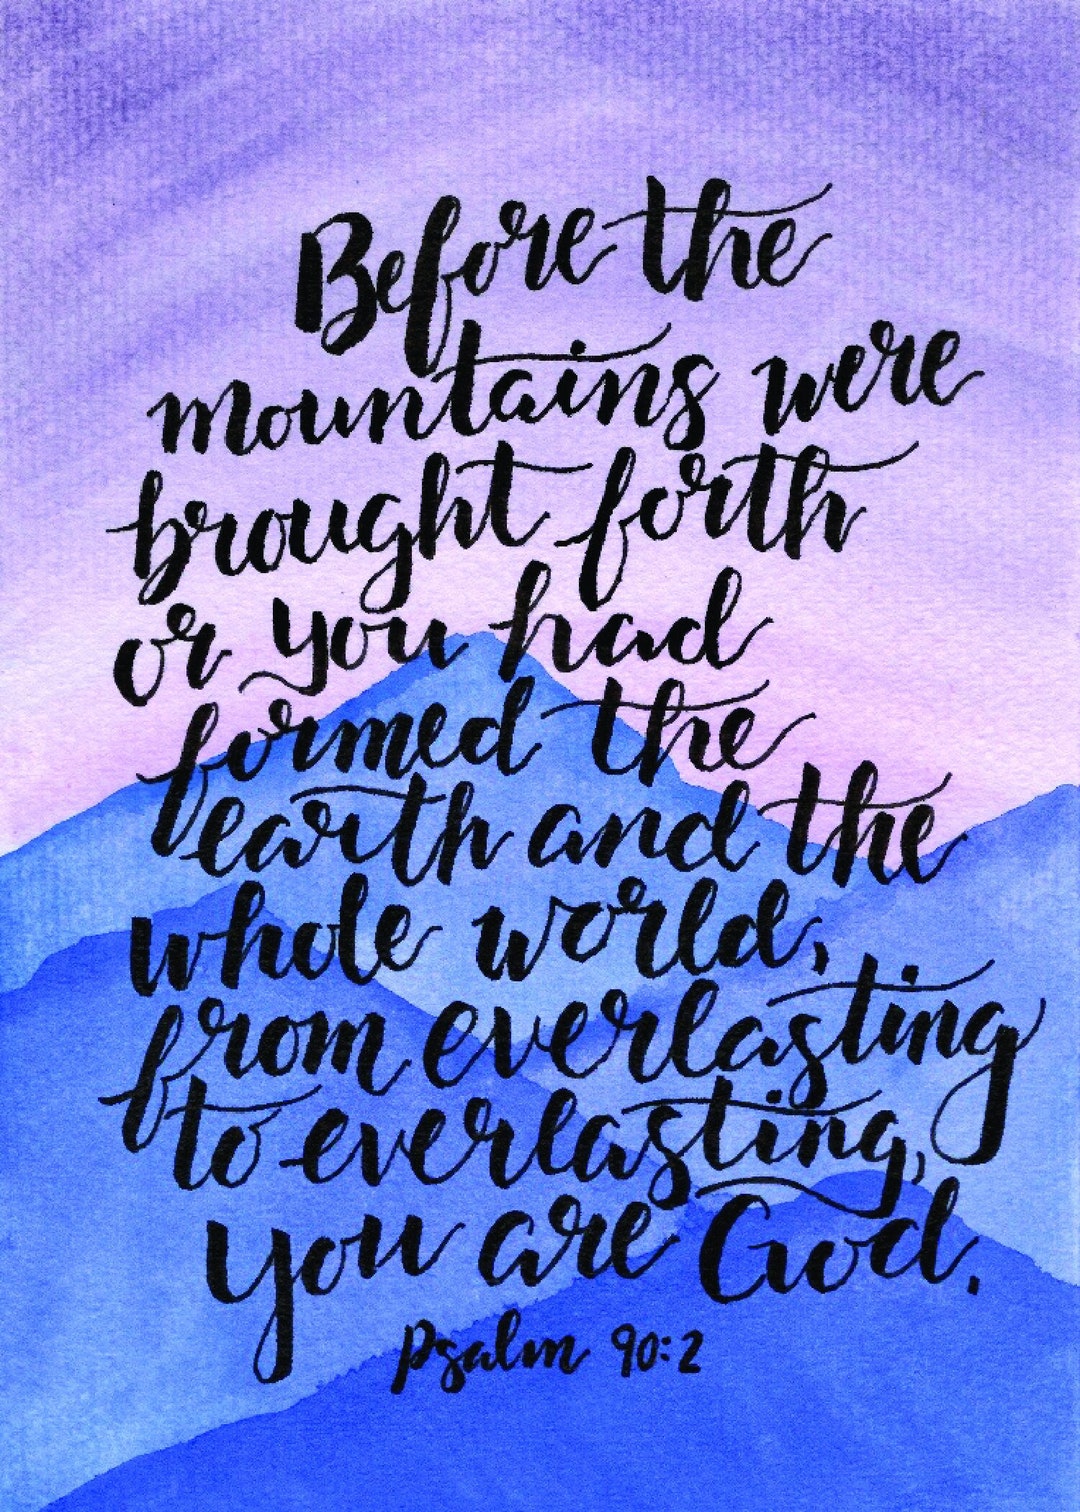 Before the
mountains were
brought forth
or you had
formed the
earth and the
whole world,
from everlasting
to everlasting,
you are God.
Psalm 90:2